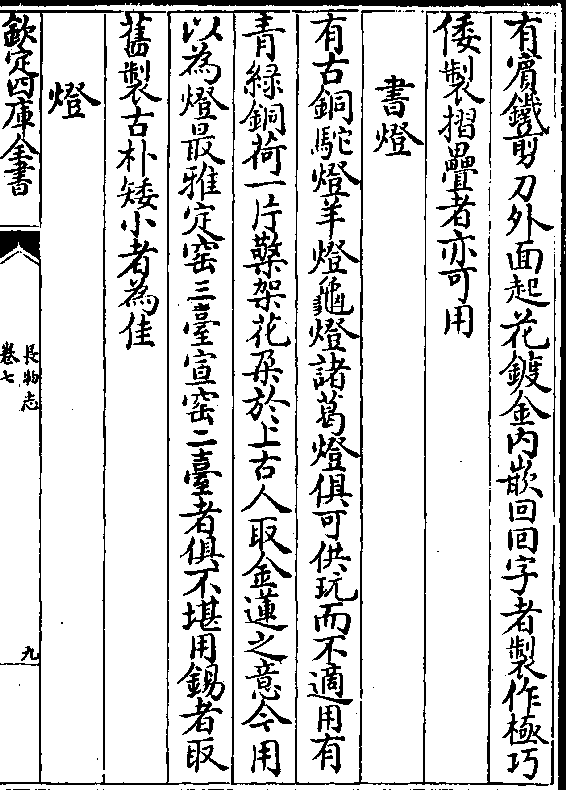 有賓鐵剪刀外面起花鍍金内嵌回回字者製作極巧
倭製摺疊者亦可用
書燈
有古銅駝燈羊燈龜燈諸葛燈俱可供玩而不適用有
青綠銅荷一片檠架花朶於上古人取金蓮之意今用
以為燈最雅定窑三臺宣窑二臺者俱不堪用錫者取
舊製古朴矮小者為佳
燈
欽定四庫全書
長物志
卷七
九